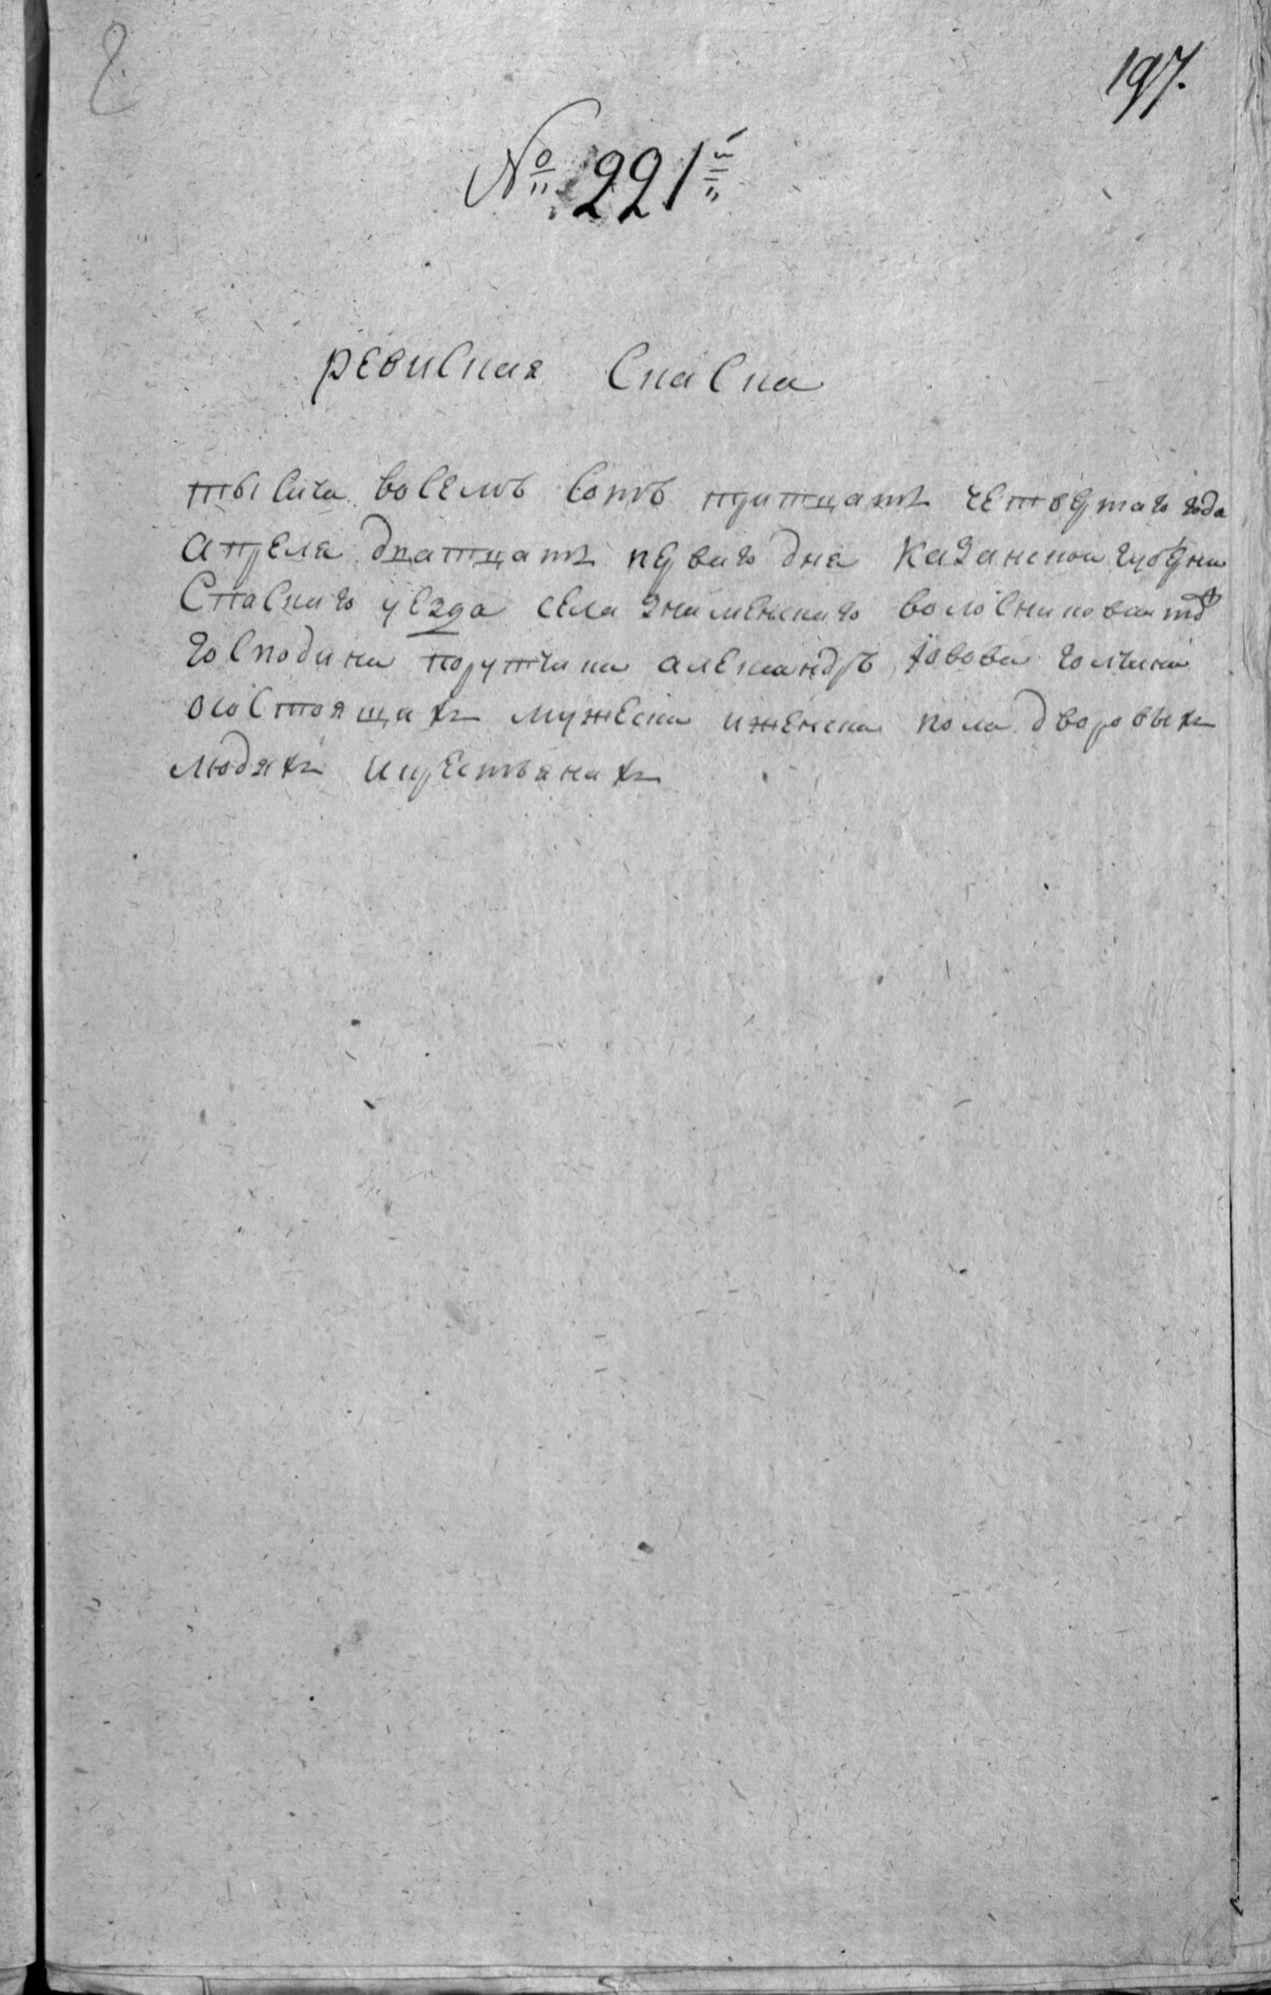 197.
№ 221й
ревиская скаска
тысяча восемъ сотъ тритцать четвертаго года
апреля дватцать перваго дня казанской губерни
спаскаго уезда села знаменскаго
господина порутчика александръ голчина
осостоящихъ мужеска иженска пола дворовыхъ
людяхъ икрестьянахъ